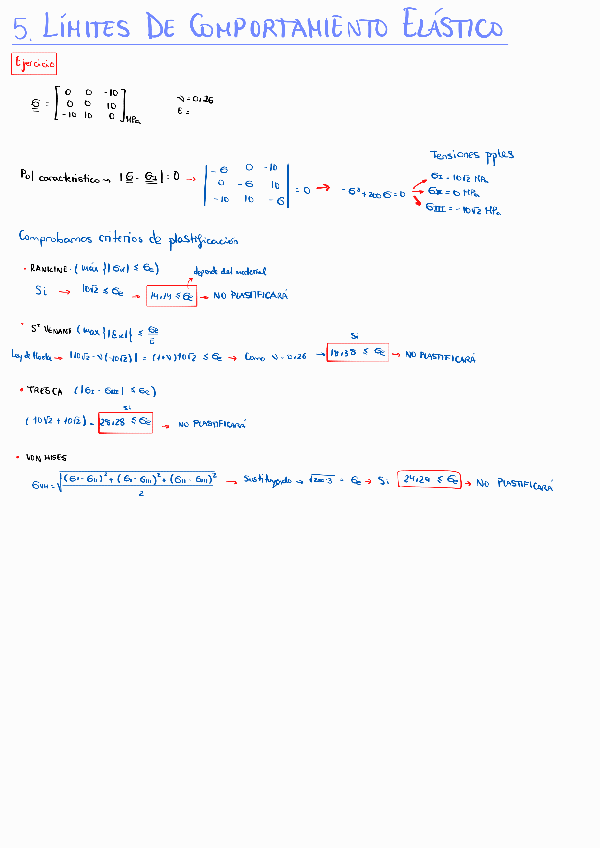 5. LÍMITES DE COMPORTAMIENTO ELÁSTICO
Ejercicio
σ = [ 0 0 -10 ; 0 0 10 ; -10 10 0 ] MPa
ν = 0,26
E =
Tensiones pples
Pol característico → |σ - σI| = 0 → | -σ 0 -10 ; 0 -σ 10 ; -10 10 -σ | = 0 → -σ³ + 200σ = 0
σI = 10√2 MPa
σII = 0 MPa
σIII = -10√2 MPa
Comprobamos criterios de plastificación
• RANKINE · (máx {|σk|} ≤ σe) depende del material
Si → 10√2 ≤ σe → 14,14 ≤ σe → NO PLASTIFICARÁ
• St VENANT (max {|εk|} ≤ σe/E
Si
Ley de Hooke → |10√2 - ν(-10√2)| = (1+ν)10√2 ≤ σe → Como ν = 0,26 → 18,38 ≤ σe → NO PLASTIFICARÁ
• TRESCA (|σI - σIII| ≤ σe)
si
(10√2 + 10√2) = 28,28 ≤ σe → NO PLASTIFICARÁ
• VON MISES
σVM = √((σI - σII)² + (σI - σIII)² + (σII - σIII)² / 2) → Sustituyendo → √200·3 = σe → Si 24,29 ≤ σe → NO PLASTIFICARÁ